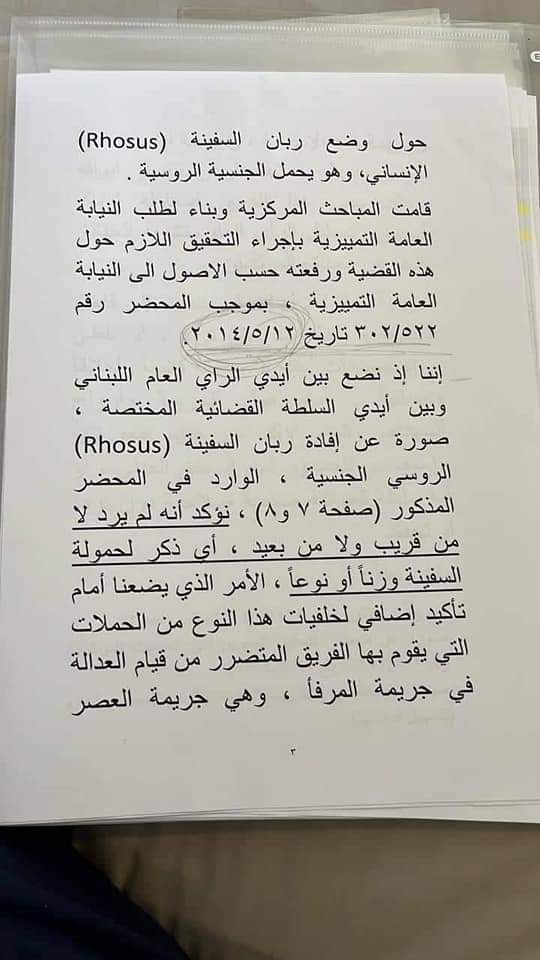 حول وضع ربان السفينة (Rhosus)
الإنساني، وهو يحمل الجنسية الروسية .
قامت المباحث المركزية وبناء لطلب النيابة
العامة التمييزية بإجراء التحقيق اللازم حول
هذه القضية ورفعته حسب الاصول الى النيابة
العامة التمييزية ، بموجب المحضر رقم
٣٠٢/٥٢٢ تاريخ ٢٠١٤/٥/١٢.
إننا إذ نضع بين أيدي الراي العام اللبناني
وبين أيدي السلطة القضائية المختصة ،
صورة عن إفادة ربان السفينة (Rhosus)
الروسي الجنسية ، الوارد في المحضر
المذكور (صفحة ٧ و٨) ، نؤكد أنه لم يرد لا
من قريب ولا من بعيد ، أي ذكر لحمولة
السفينة وزناً أو نوعاً ، الأمر الذي يضعنا أمام
تأكيد إضافي لخلفيات هذا النوع من الحملات
التي يقوم بها الفريق المتضرر من قيام العدالة
في جريمة المرفأ ، وهي جريمة العصر
٣